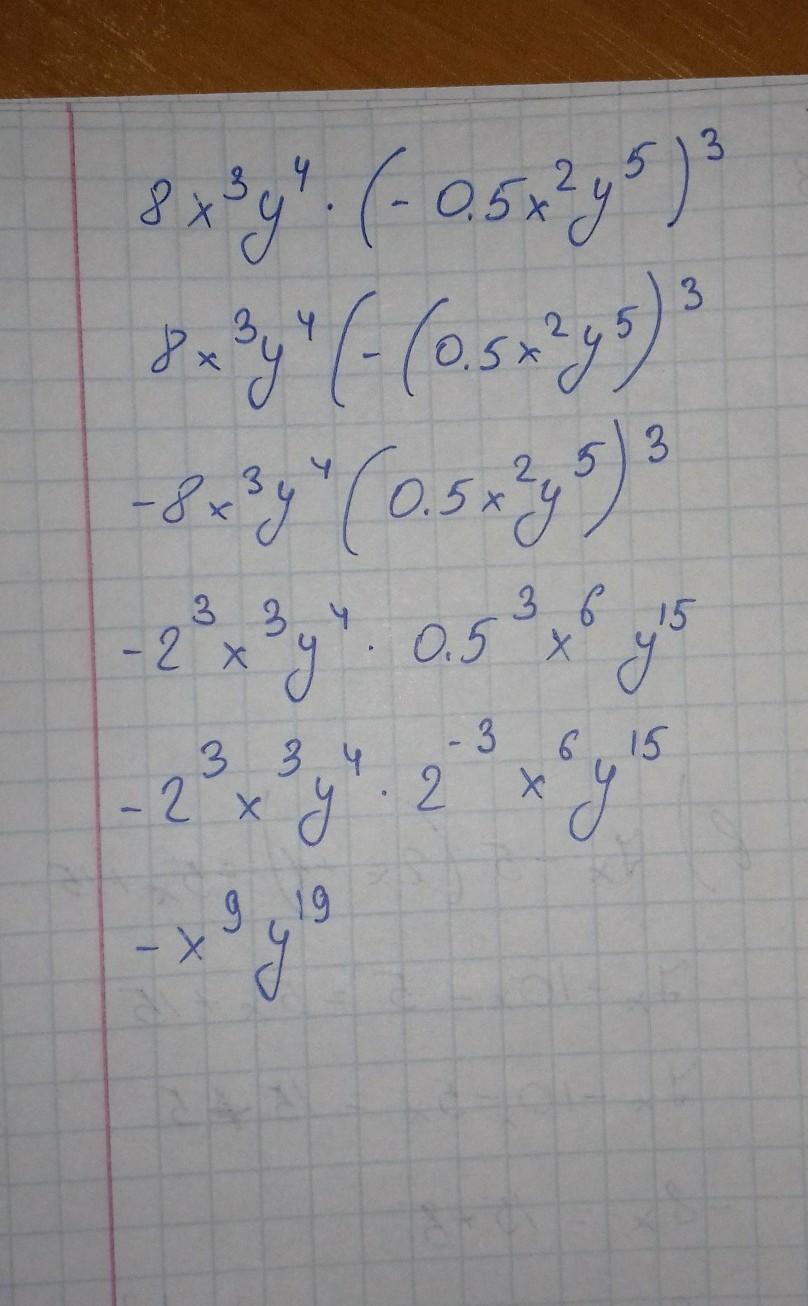 8x³y⁴ · (- 0.5x²y⁵)³
8x³y⁴ (- (0.5x²y⁵)³
-8x³y⁴ (0.5x²y⁵)³
-2³x³y⁴ · 0.5³x⁶ y¹⁵
-2³x³y⁴ · 2⁻³ x⁶y¹⁵
-x⁹y¹⁹